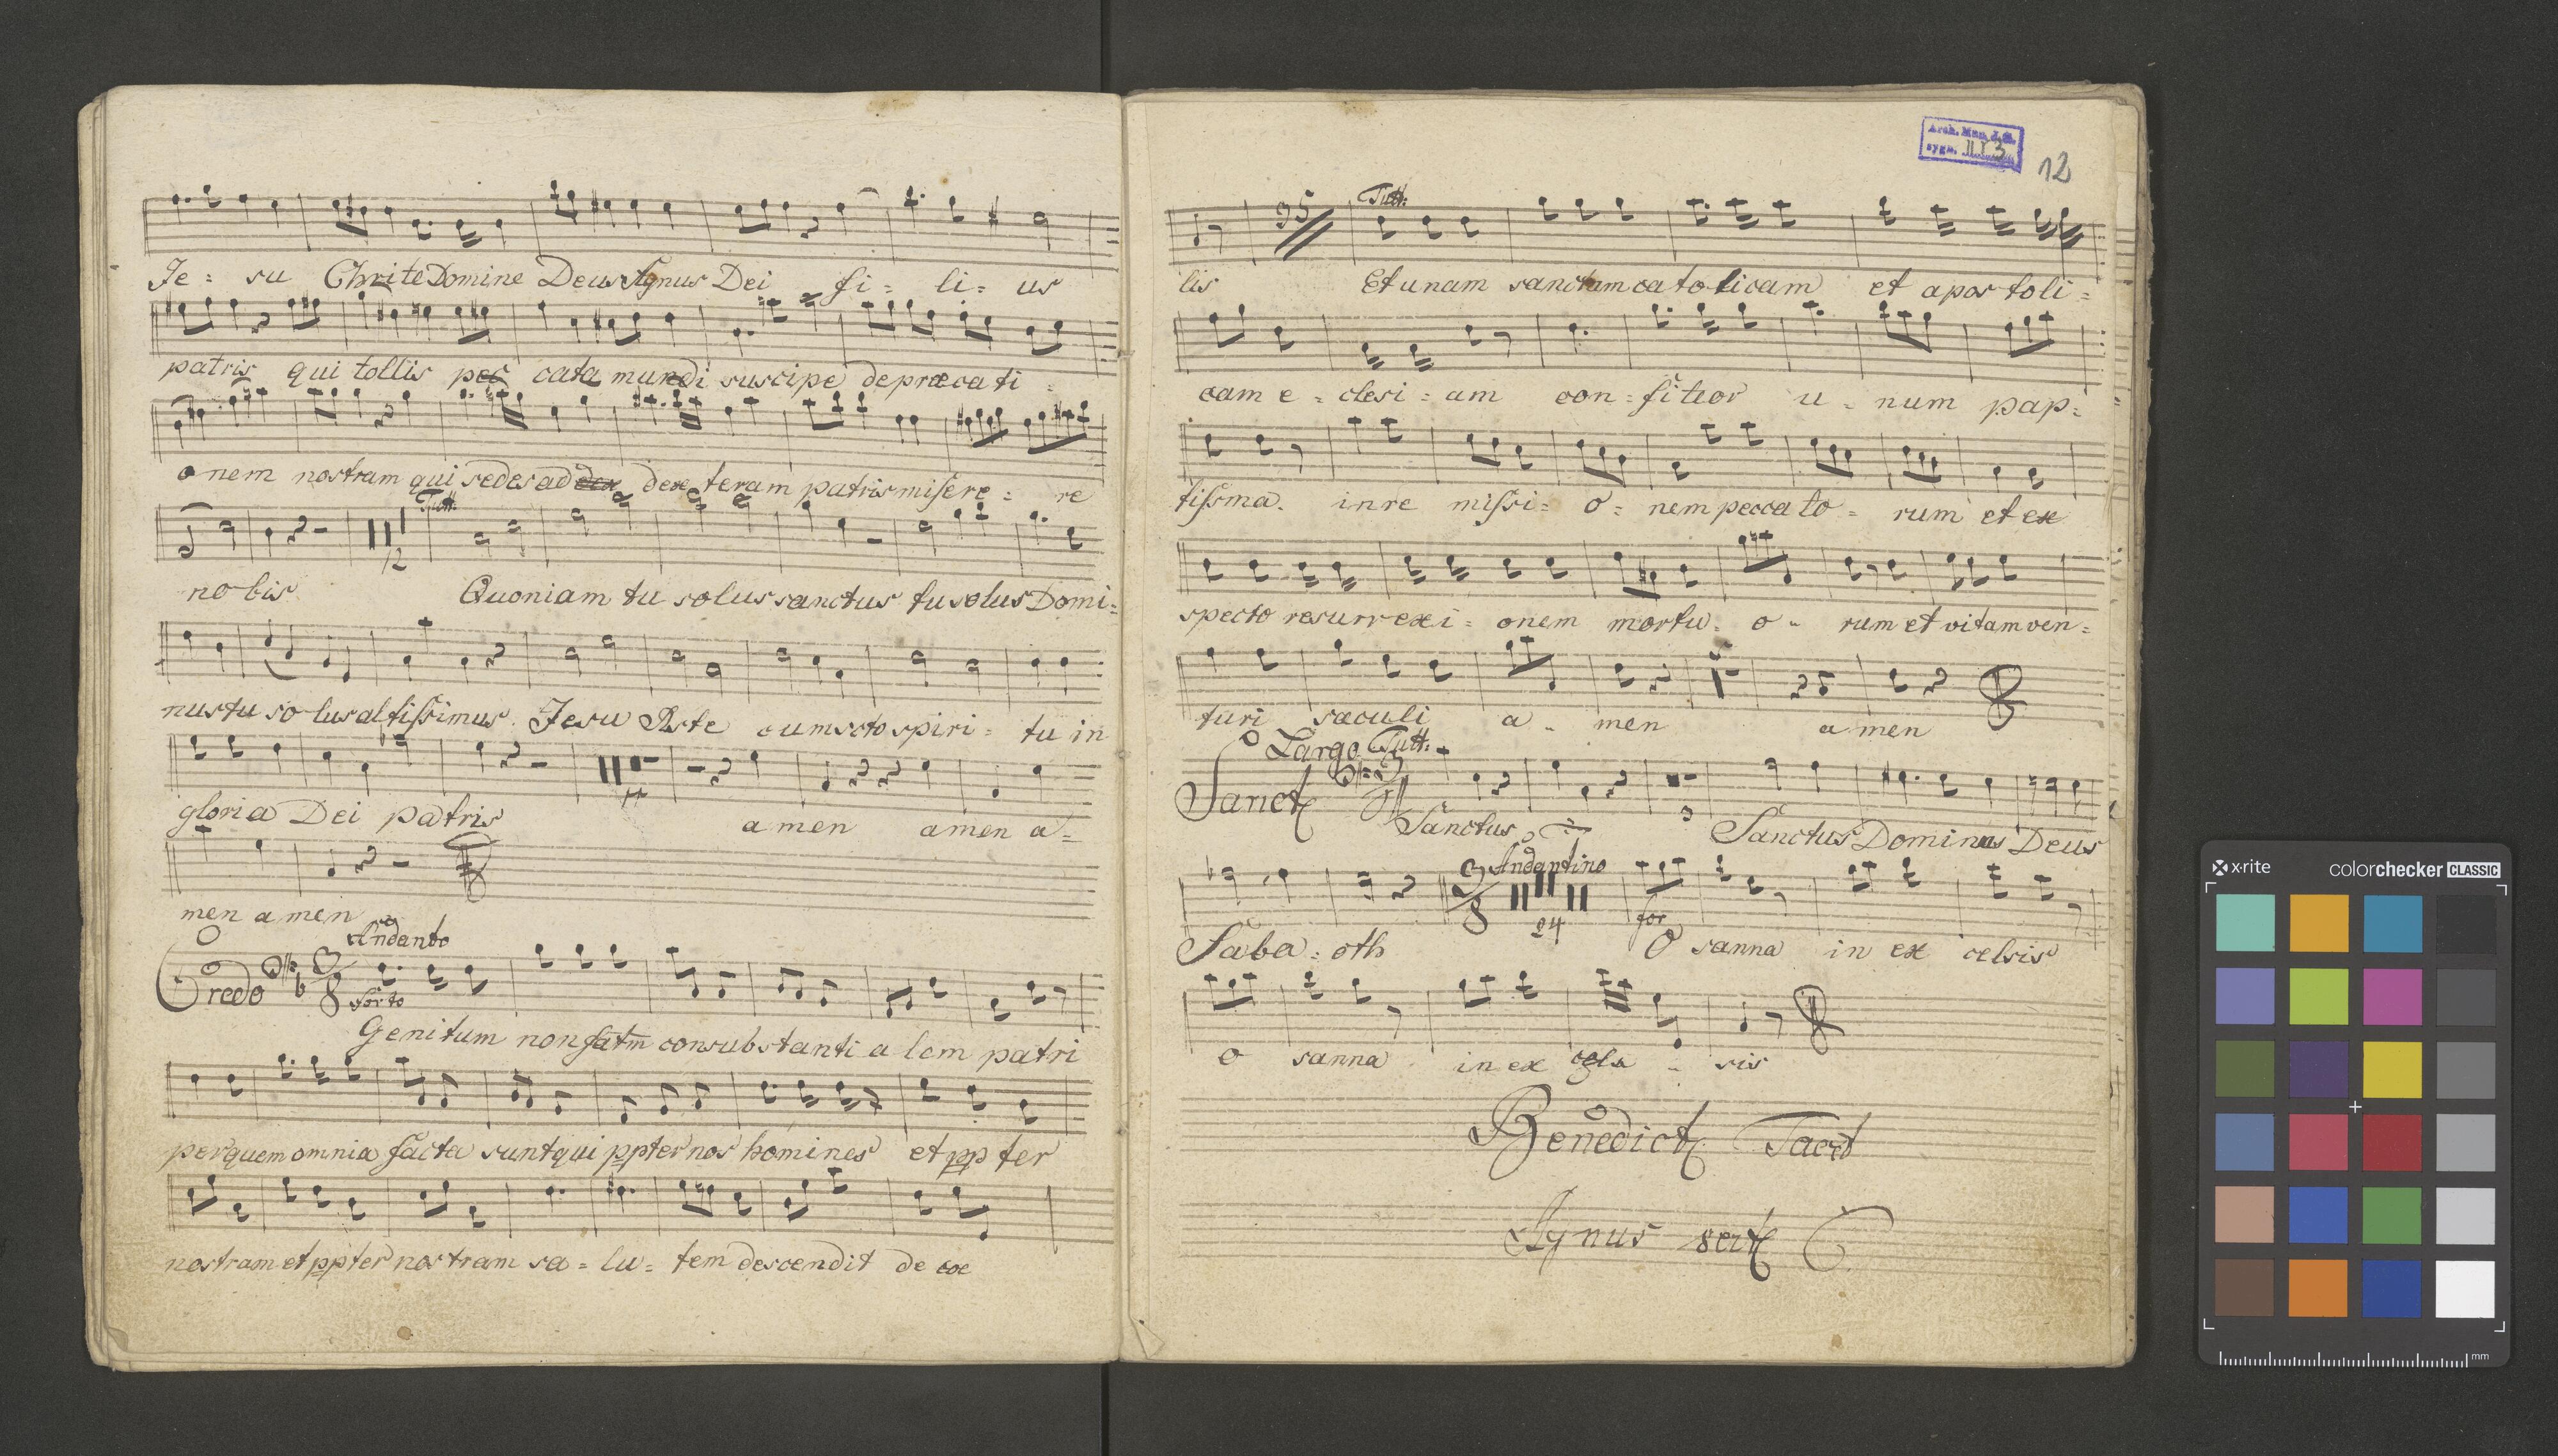 Je = su Christe Domine Deus Agnus Dei fi = li = us
patris qui tollis pec cata mundi suscipe depræcati =
onem nostram qui sedes ad dexteram patris misere = re
Tutt:
12
nobis Quoniam tu solus sanctus tu solus Domi =
nus tu so lus altissimus. Jesu Xste cum scto spiri = tu in
11
gloria Dei patris amen amen a =
men amen
Andante
Credo
3
8
forto
Genitum non fatm consubstanti a lem patri
per quem omnia facta sunt qui ppter nos homines et pp ter
nostram et ppter nostram sa = lu = tem descendit de coe
Arch. Muz. d. m.
sygn. III 3
12
95
Tutt:
lis Et unam sanctam catolicam et apostoli =
cam e = clesi = am con = fiteor u = num pap =
tissma. in re missi = o = nem pecca to = rum et ex
specto resurrexi = onem mortu = o - rum et vitam ven =
turi sæculi a - men amen
Largo Tutt:
Sanct
3
Sanctus Sanctus Dominus Deus
Andantino
3
8
24
for
Saba = oth O sanna in ex celsis
o sanna in ex cels - sis
Benedict Tacet
Agnus